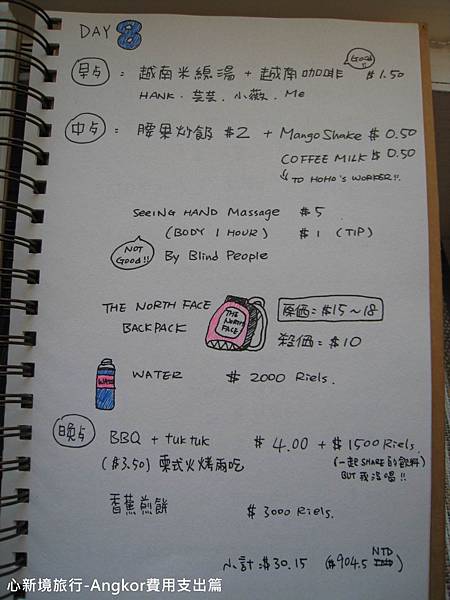 DAY 8
早点 : 越南米線湯 + 越南咖啡 Good!! $1.50
HANK . 芸芸 . 小薇 . Me
中点 : 腰果炒飯 $2 + Mango Shake $0.50
COFFEE MILK $0.50
↳ TO HOHO'S WORKER!!.
SEEING HAND Massage $5
(BODY 1 HOUR) $1 (TIP)
NOT GOOD!! By Blind People
THE NORTH FACE BACKPACK
THE NORTH FACE
原価=$15~18
殺価=$10
WATER
WATER $2000 Riels.
晚点 BBQ + tuktuk $4.00 + $1500 Riels.
($3.50) 式火烤兩吃 (一起SHARE的飲料)
BUT我沒喝!!
香蕉煎餅 $3000 Riels.
小計:$30.15 ($904.5 NTD)
心新境旅行-Angkor費用支出篇